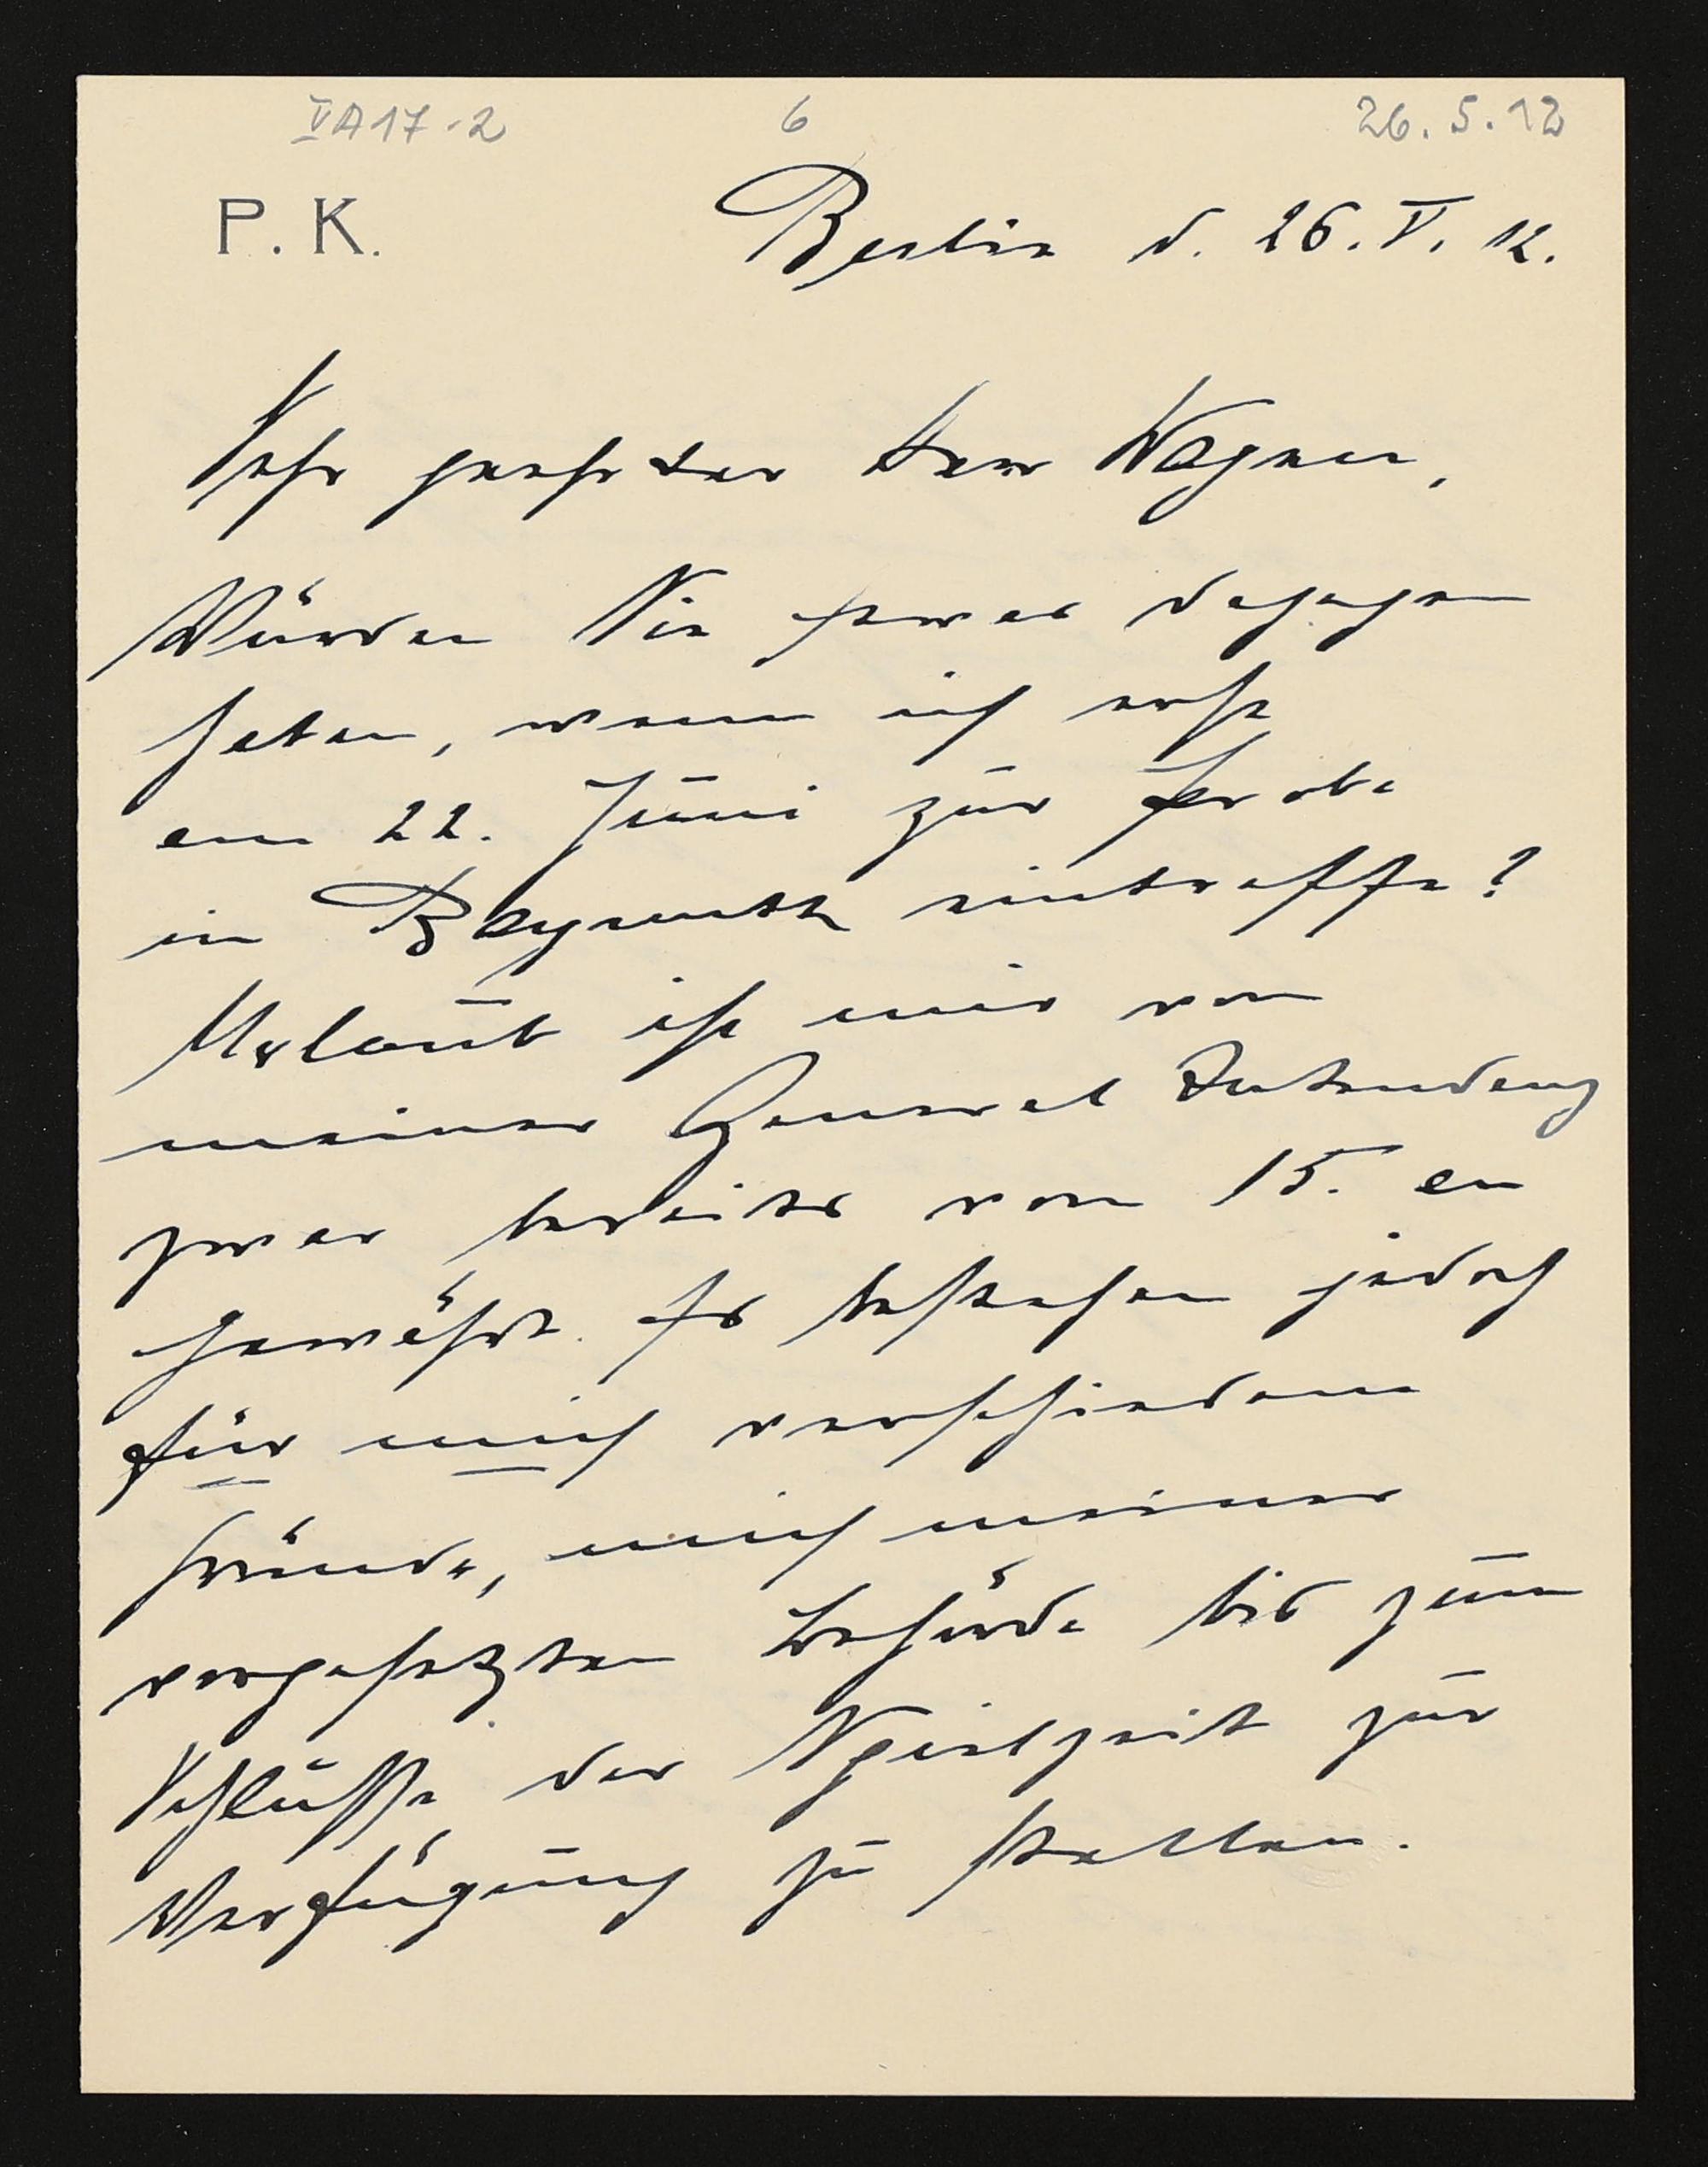 VA17-2 6 26.5.12
P. K. Berlin d. 26. V. 12.
Sehr geehrter Herr Wagner,
Würden Sie etwas dagegen
haben, wenn ich erst
am 22. Juni zur Probe
in Bayreuth eintreffe?
Urlaub ist mir von
meiner General Intendanz
zwar bereits vom 15. an
gewährt. Es bestehen jedoch
für mich verschiedene
Gründe, mich meiner
vorgesetzten Behörde bis zum
Schlusse der Spielzeit zur
Verfügung zu stellen.